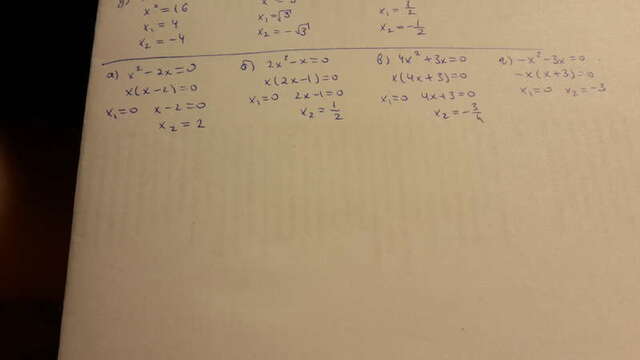 x² = 16
x₁ = 4
x₂ = -4
x₁ = √3
x₂ = -√3
x₁ = 1/2
x₂ = -1/2
а) x² - 2x = 0
x(x - 2) = 0
x₁ = 0 x - 2 = 0
x₂ = 2
б) 2x² - x = 0
x(2x - 1) = 0
x₁ = 0 2x - 1 = 0
x₂ = 1/2
в) 4x² + 3x = 0
x(4x + 3) = 0
x₁ = 0 4x + 3 = 0
x₂ = -3/4
г) -x² - 3x = 0
-x(x + 3) = 0
x₁ = 0 x₂ = -3